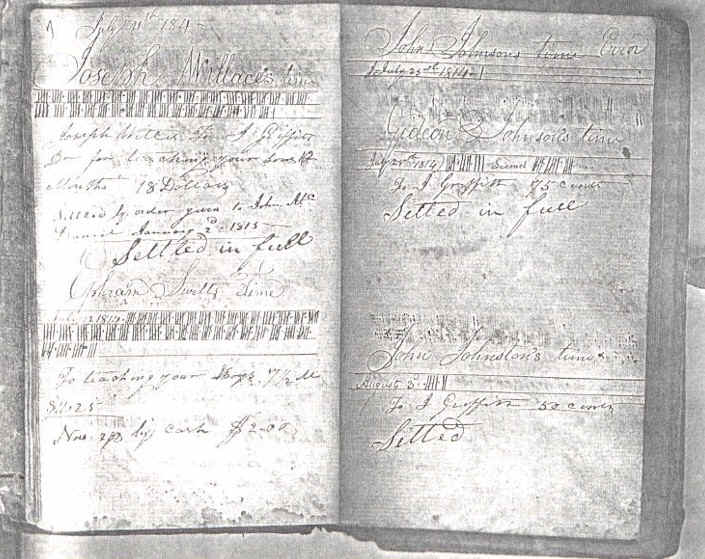 July 11th 184
Joseph Willace's time
Joseph Willace to J Griffitt
Dr for teaching your sons 12
Months 18 Dollars
by order given to John Mc
January 2d 1815
Settled in full
Ephraim Swetts time
1814
To teaching your Boys 7½ M
$11.25
Nov. by cash $2.00
John Johnsons time Error
July 25th 1814
Gideon Johnson's time
July 25th 1814
To J Griffitt 75 cents
Setled in full
John Johnston's time
August 3
To J Griffitt 50 cents
Setled